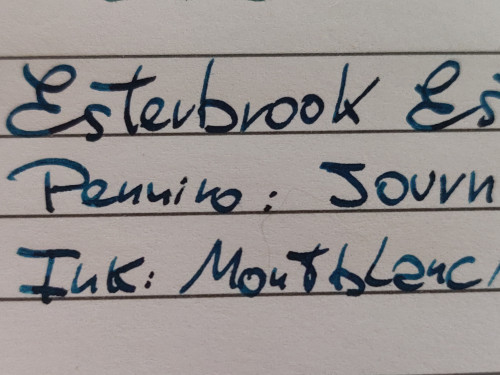 Esterbrook Es
Pennino: Journ
Ink: Montblanc